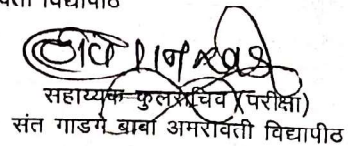 विद्यापीठ
सहाय्यक कुलसचिव (परीक्षा)
संत गाडगे बाबा अमरावती विद्यापीठ